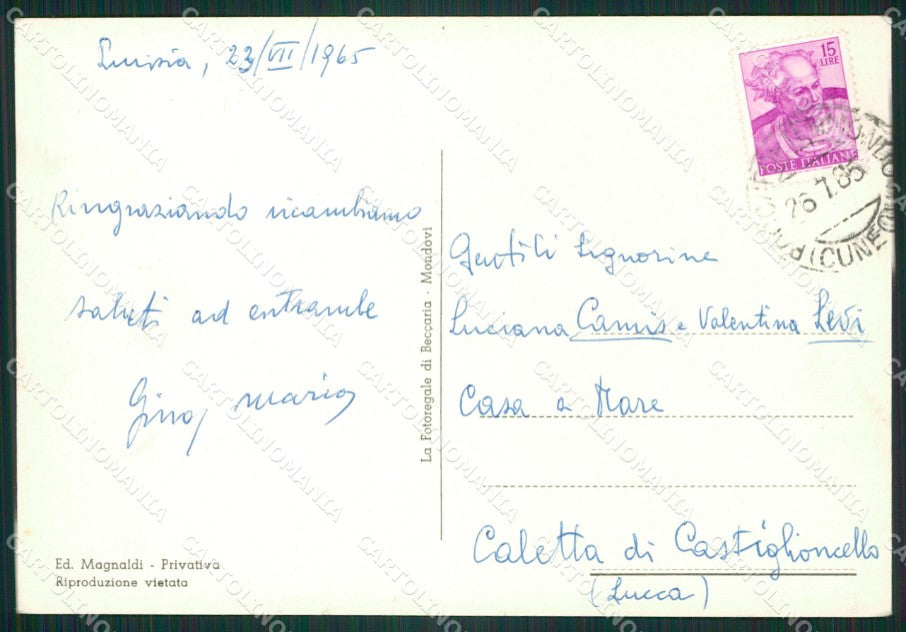 23/VII/1965
15
LIRE
POSTE ITALIANE
26.7.65
(CUNEO)
Ringraziando ricambiamo
saluti ad entrambe
Gino, Mario
La Fotoregale di Beccaria - Mondovì
Gentili Signorine
Luciana Camis e Valentina Levi
Casa a Mare
Caletta di Castiglioncello
(Lucca)
Ed. Magnaldi - Privativa
Riproduzione vietata
CARTOLINOMANIA